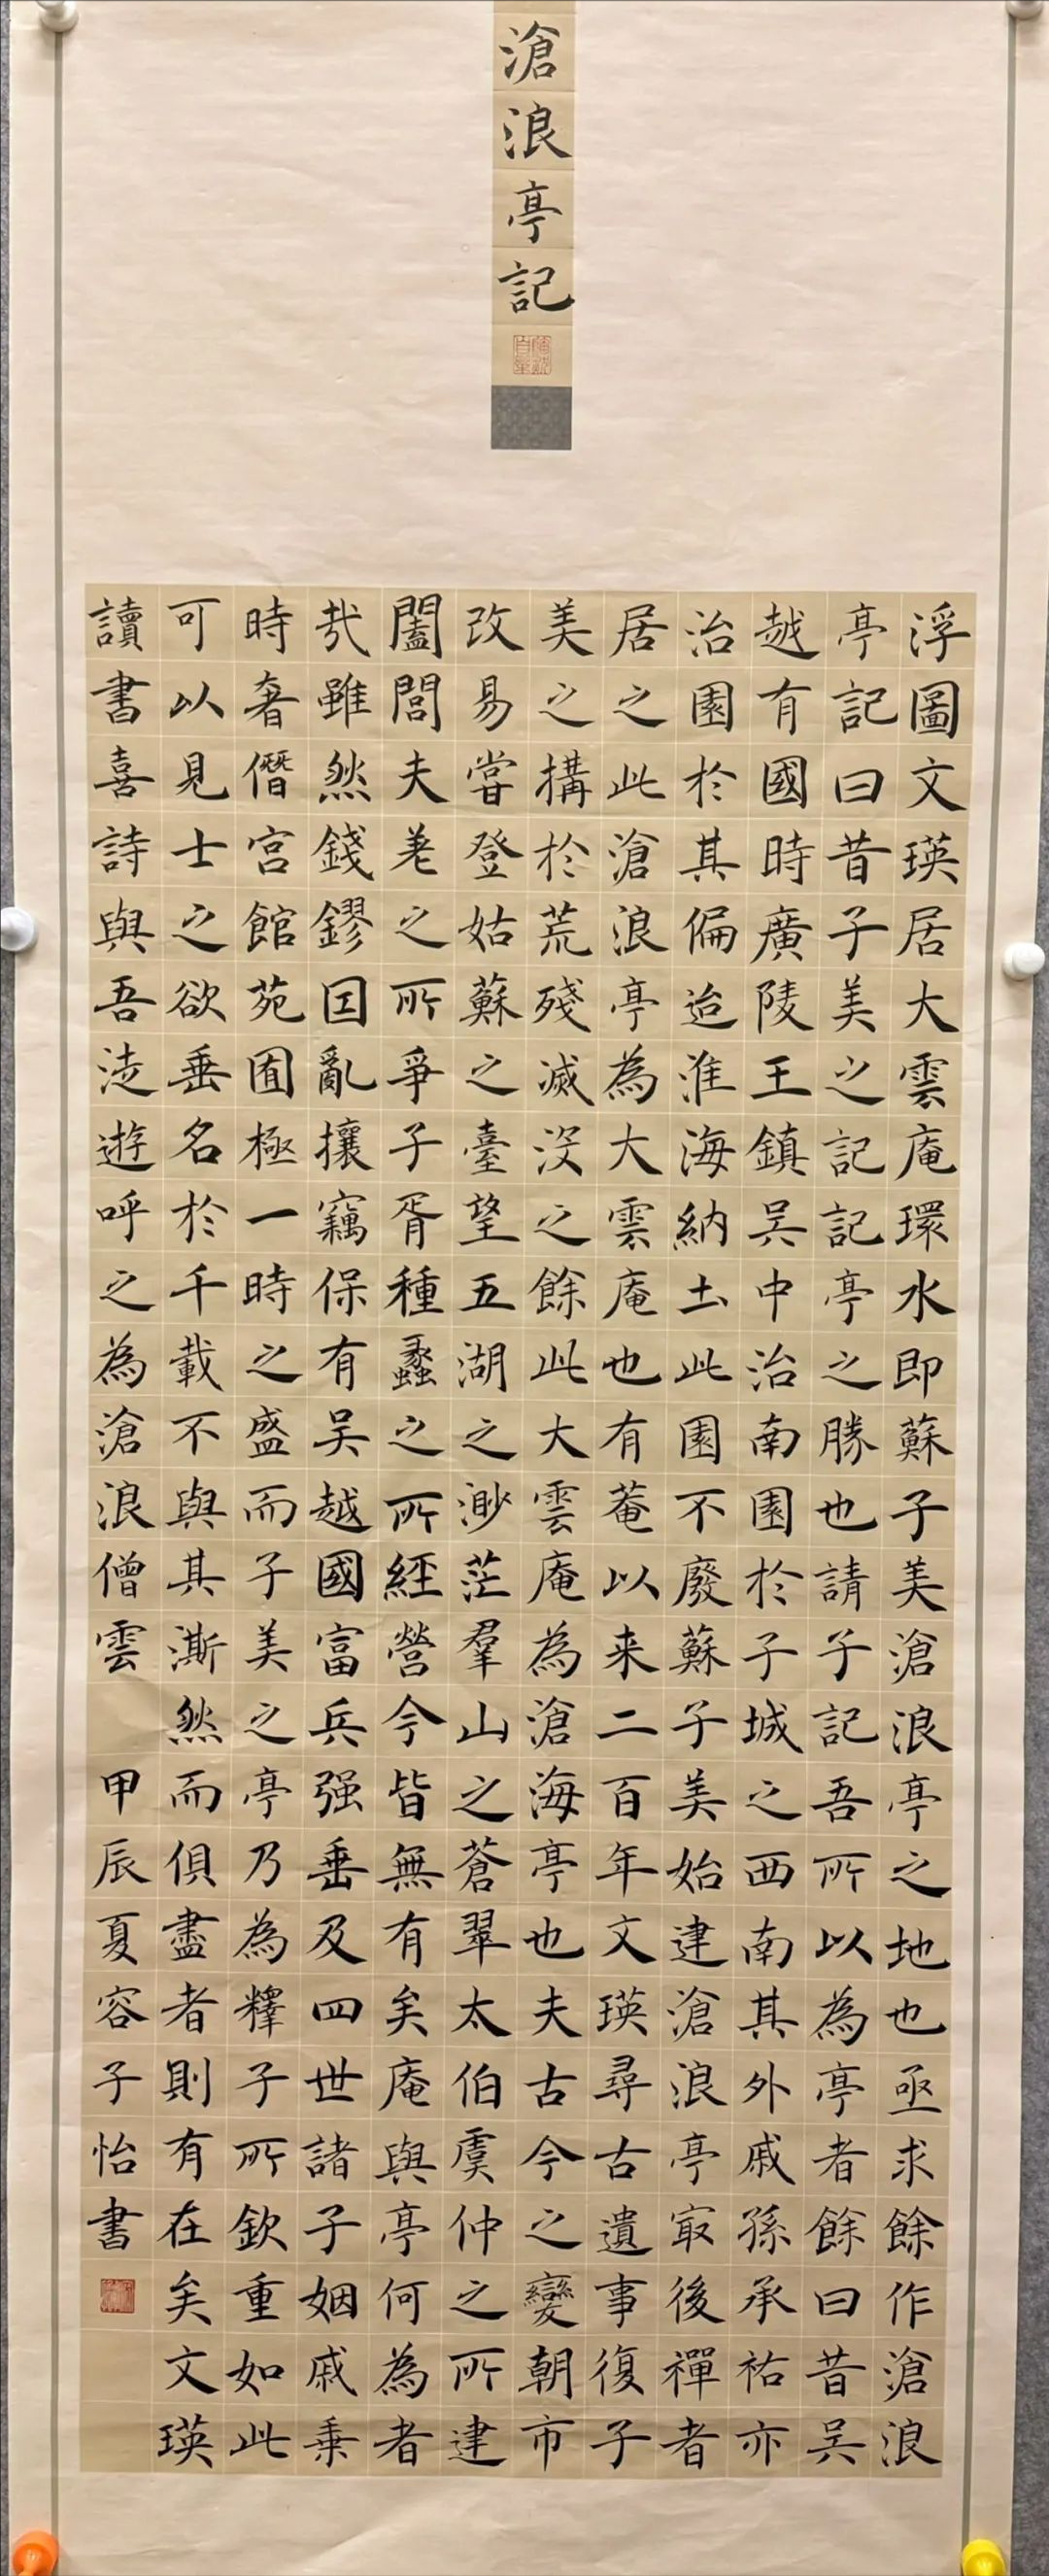 滄浪亭記
浮圖文瑛居大雲庵環水即蘇子美滄浪亭之地也亟求餘作滄浪
亭記曰昔子美之記記亭之勝也請子記吾所以為亭者餘曰昔吳
越有國時廣陵王鎮吳中治南園於子城之西南其外戚孫承祐亦
治園於其偏迨淮海納土此園不廢蘇子美始建滄浪亭冣後禪者
居之此滄浪亭為大雲庵也有菴以来二百年文瑛尋古遺事復子
美之構於荒殘滅沒之餘此大雲庵為滄海亭也夫古今之變朝市
改易嘗登姑蘇之臺望五湖之渺茫羣山之蒼翠太伯虞仲之所建
闔閭夫差之所爭子胥種蠡之所經營今皆無有矣庵與亭何為者
哉雖然錢鏐因亂攘竊保有吳越國富兵强垂及四世諸子姻戚乗
時奢僭宮館苑囿極一時之盛而子美之亭乃為釋子所欽重如此
可以見士之欲垂名於千載不與其澌然而俱盡者則有在矣文瑛
讀書喜詩與吾徒遊呼之為滄浪僧雲 甲辰夏容子怡書